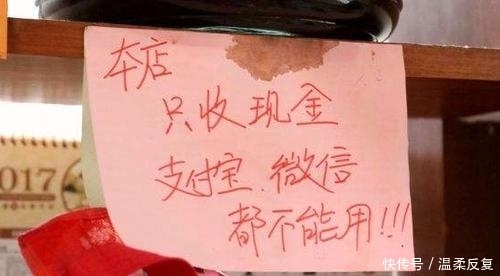 本店
只收现金
支付宝.微信
都不能用!!!
2017
快传号／温柔反复